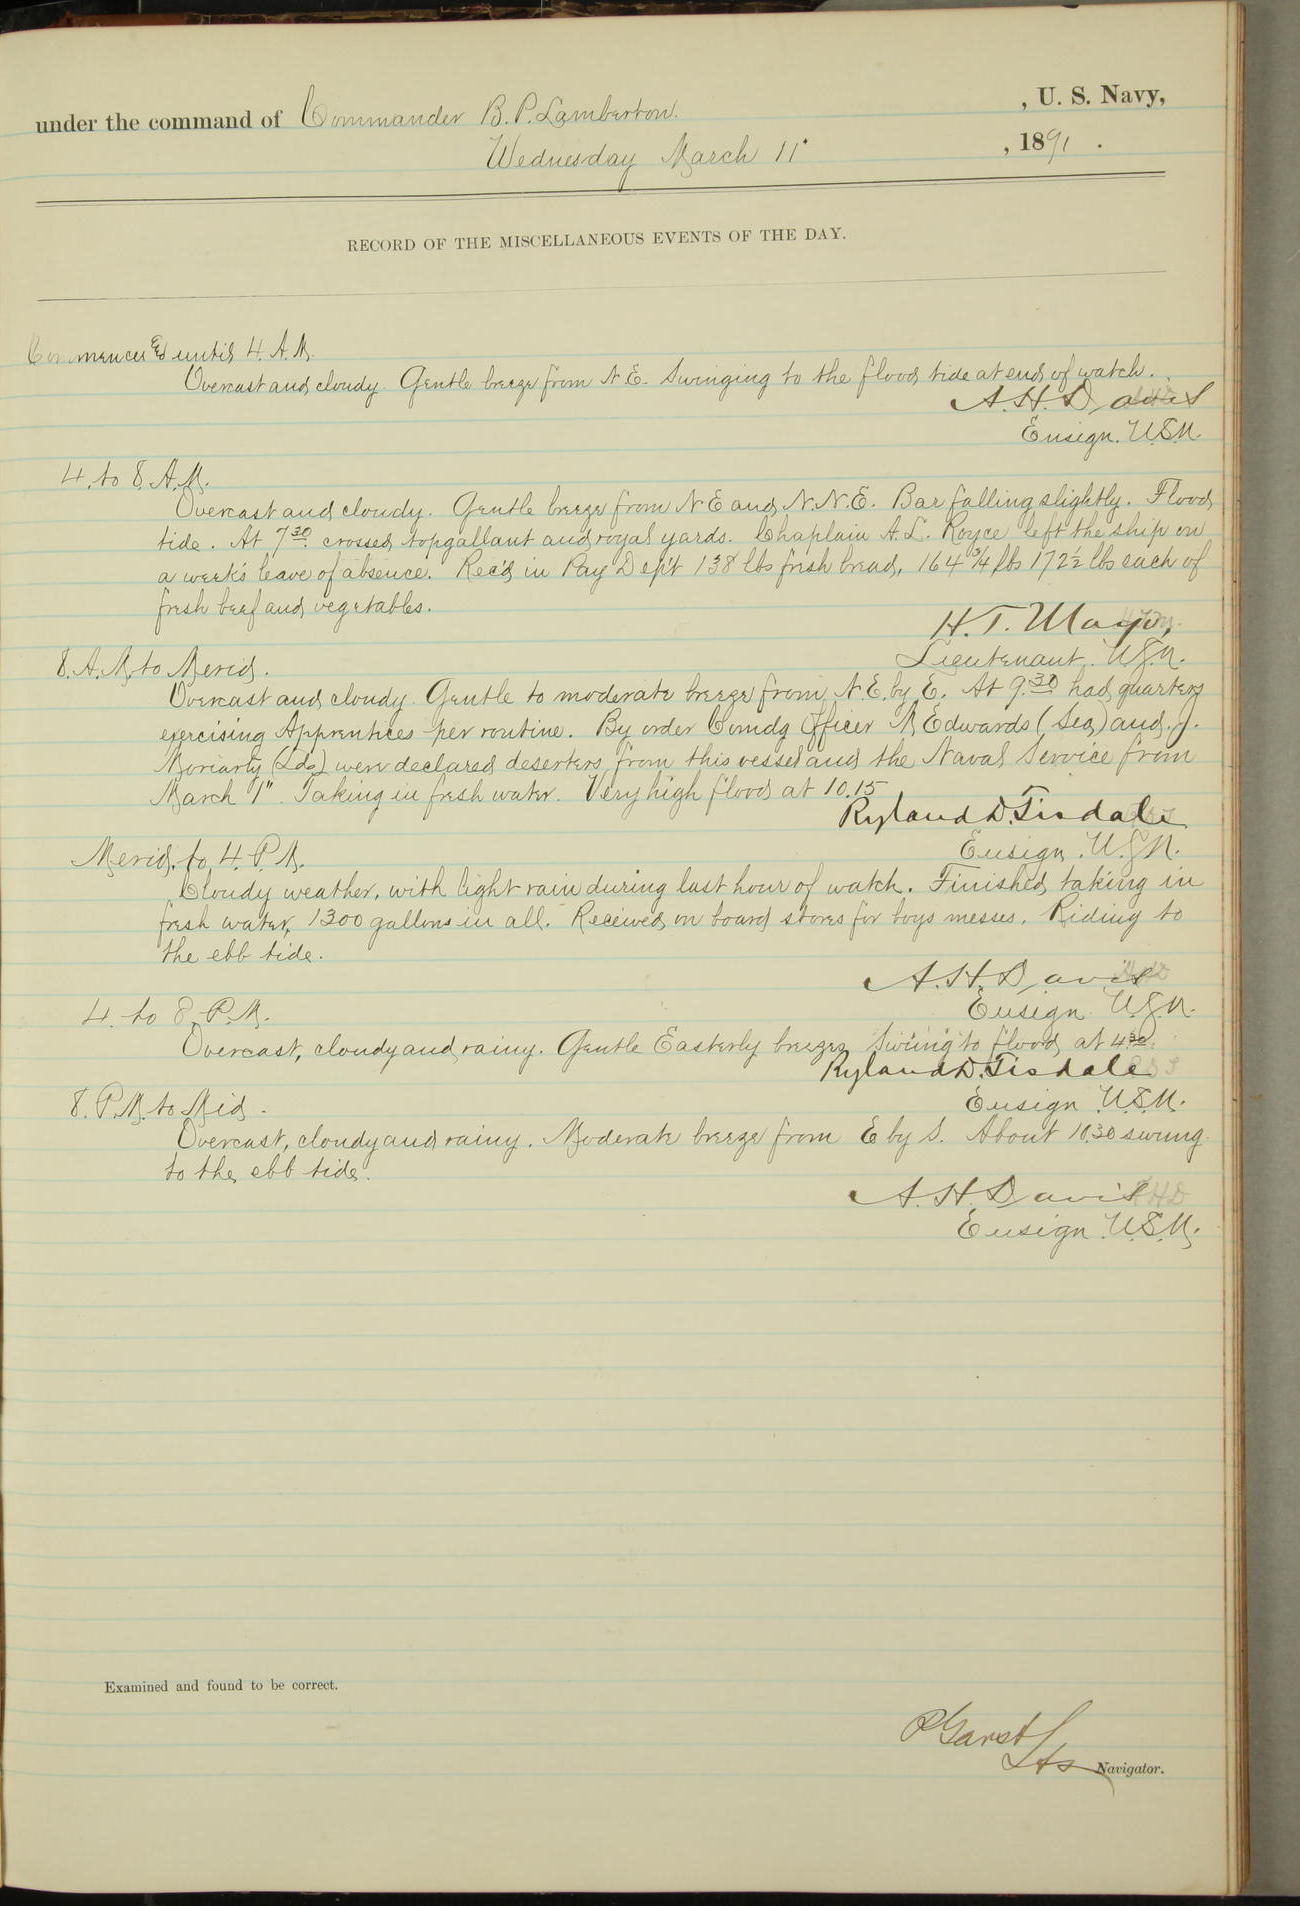 under the command of Commander B. P. Lamberton. , U. S. Navy,
Wednesday March 11 , 1891 .
RECORD OF THE MISCELLANEOUS EVENTS OF THE DAY.
Commences & until 4. A. M.
Overcast and cloudy. Gentle breeze from N. E. Swinging to the flood tide at end of watch.
A. H. Davis
Ensign. U.S.N.
4. to 8. A. M.
Overcast and cloudy. Gentle breeze from N E and N. N. E. Bar falling slightly. Flood
tide. At 7 30 crossed topgallant and royal yards. Chaplain A. L. Royce left the ship on
a week's leave of absence. Rec'd in Pay Dep't 138 lbs fresh bread, 164 3/4 lbs 172 1/2 lbs each of
fresh beef and vegetables.
H. T. Mayo,
Lieutenant. U.S.N.
8. A. M. to Merid.
Overcast and cloudy. Gentle to moderate breeze from N. E. by E. At 9.30 had quarters
exercising Apprentices per routine. By order Comdg Officer Edwards (Sea) and J.
Moriarty (Lds) were declared deserters from this vessel and the Naval Service from
March 1". Taking in fresh water. Very high flood at 10.15
Ryland D. Tisdale
Ensign. U.S.N.
Merid. to 4. P. M.
Cloudy weather, with light rain during last hour of watch. Finished taking in
fresh water, 1300 gallons in all. Received on board stores for boys messes. Riding to
the ebb tide.
A. H. Davis
Ensign U.S.N.
4. to 8. P. M.
Overcast, cloudy and rainy. Gentle Easterly breezes Swung to flood at 4.30.
Ryland D. Tisdale
Ensign U.S.N.
8. P. M. to Mid.
Overcast, cloudy and rainy. Moderate breeze from E by S. About 10.30 swung
to the ebb tide.
A. H. Davis
Ensign U.S.N.
Examined and found to be correct.
P Garst
Navigator.